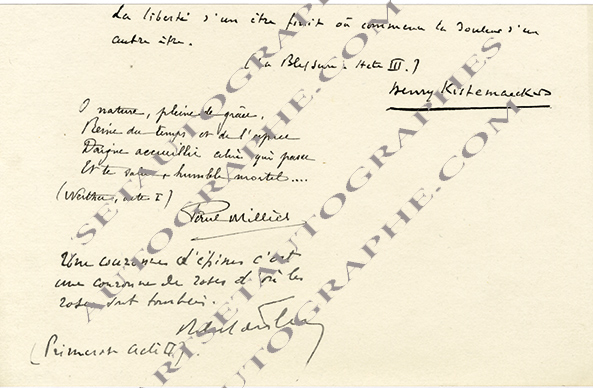 La liberté d'un être finit où commence la douleur d'un
autre être.
(La Blessure. Acte III.)
Henry Kistemaeckers
O nature, pleine de grâce,
Reine du temps et de l'espace
Daigne accueillir celui qui passe
Et te salue, humble mortel....
(Werther, acte I)
Paul Milliet
Une couronne d'épines c'est
une couronne de roses d'où les
roses sont tombées.
Robert de Flers
(Primerose acte II)
ARTSETAUTOGRAPHES
ARTSETAUTOGRAPHE.COM